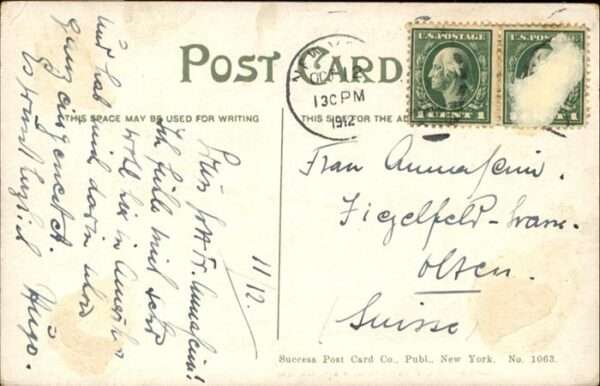 POST CARD
THIS SPACE MAY BE USED FOR WRITING
THIS SIDE FOR THE AD
U.S. POSTAGE
1 CENT 1
U.S. POSTAGE
1
NEW Y
OCT 12
130 PM
1912
11/12.
Grüss Gott Fr. Annaheim!
Ich fühle mich sehr
wohl hier in Amerika
und hab mich darin schon
ganz eingenetzt.
Es grüsst herzlich
Hugo.
Frau Annaheim.
Ziegelfeld-
Olten.
Suisse
Success Post Card Co., Publ., New York. No. 1063.